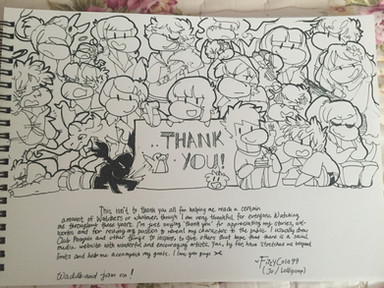 ..THANK
YOU!!
This isn't to thank you all for helping me reach a certain
amount of Watchers or whatever, though I am very thankful for everyone Watching
me throughout these years. I'm just saying "thank you" for appreciating my stories, and
for reviving my passion to reveal my characters to the public. I usually draw
Club Penguin and other things to inspire, to give others that hope, that there is a social
media website with wonderful and encouraging artists. You, by far, have stretched me beyond
limits and helped me accomplish my goals. I love you guys
~FizzyCola99
(Jo / Lollipop)
Waddle on!